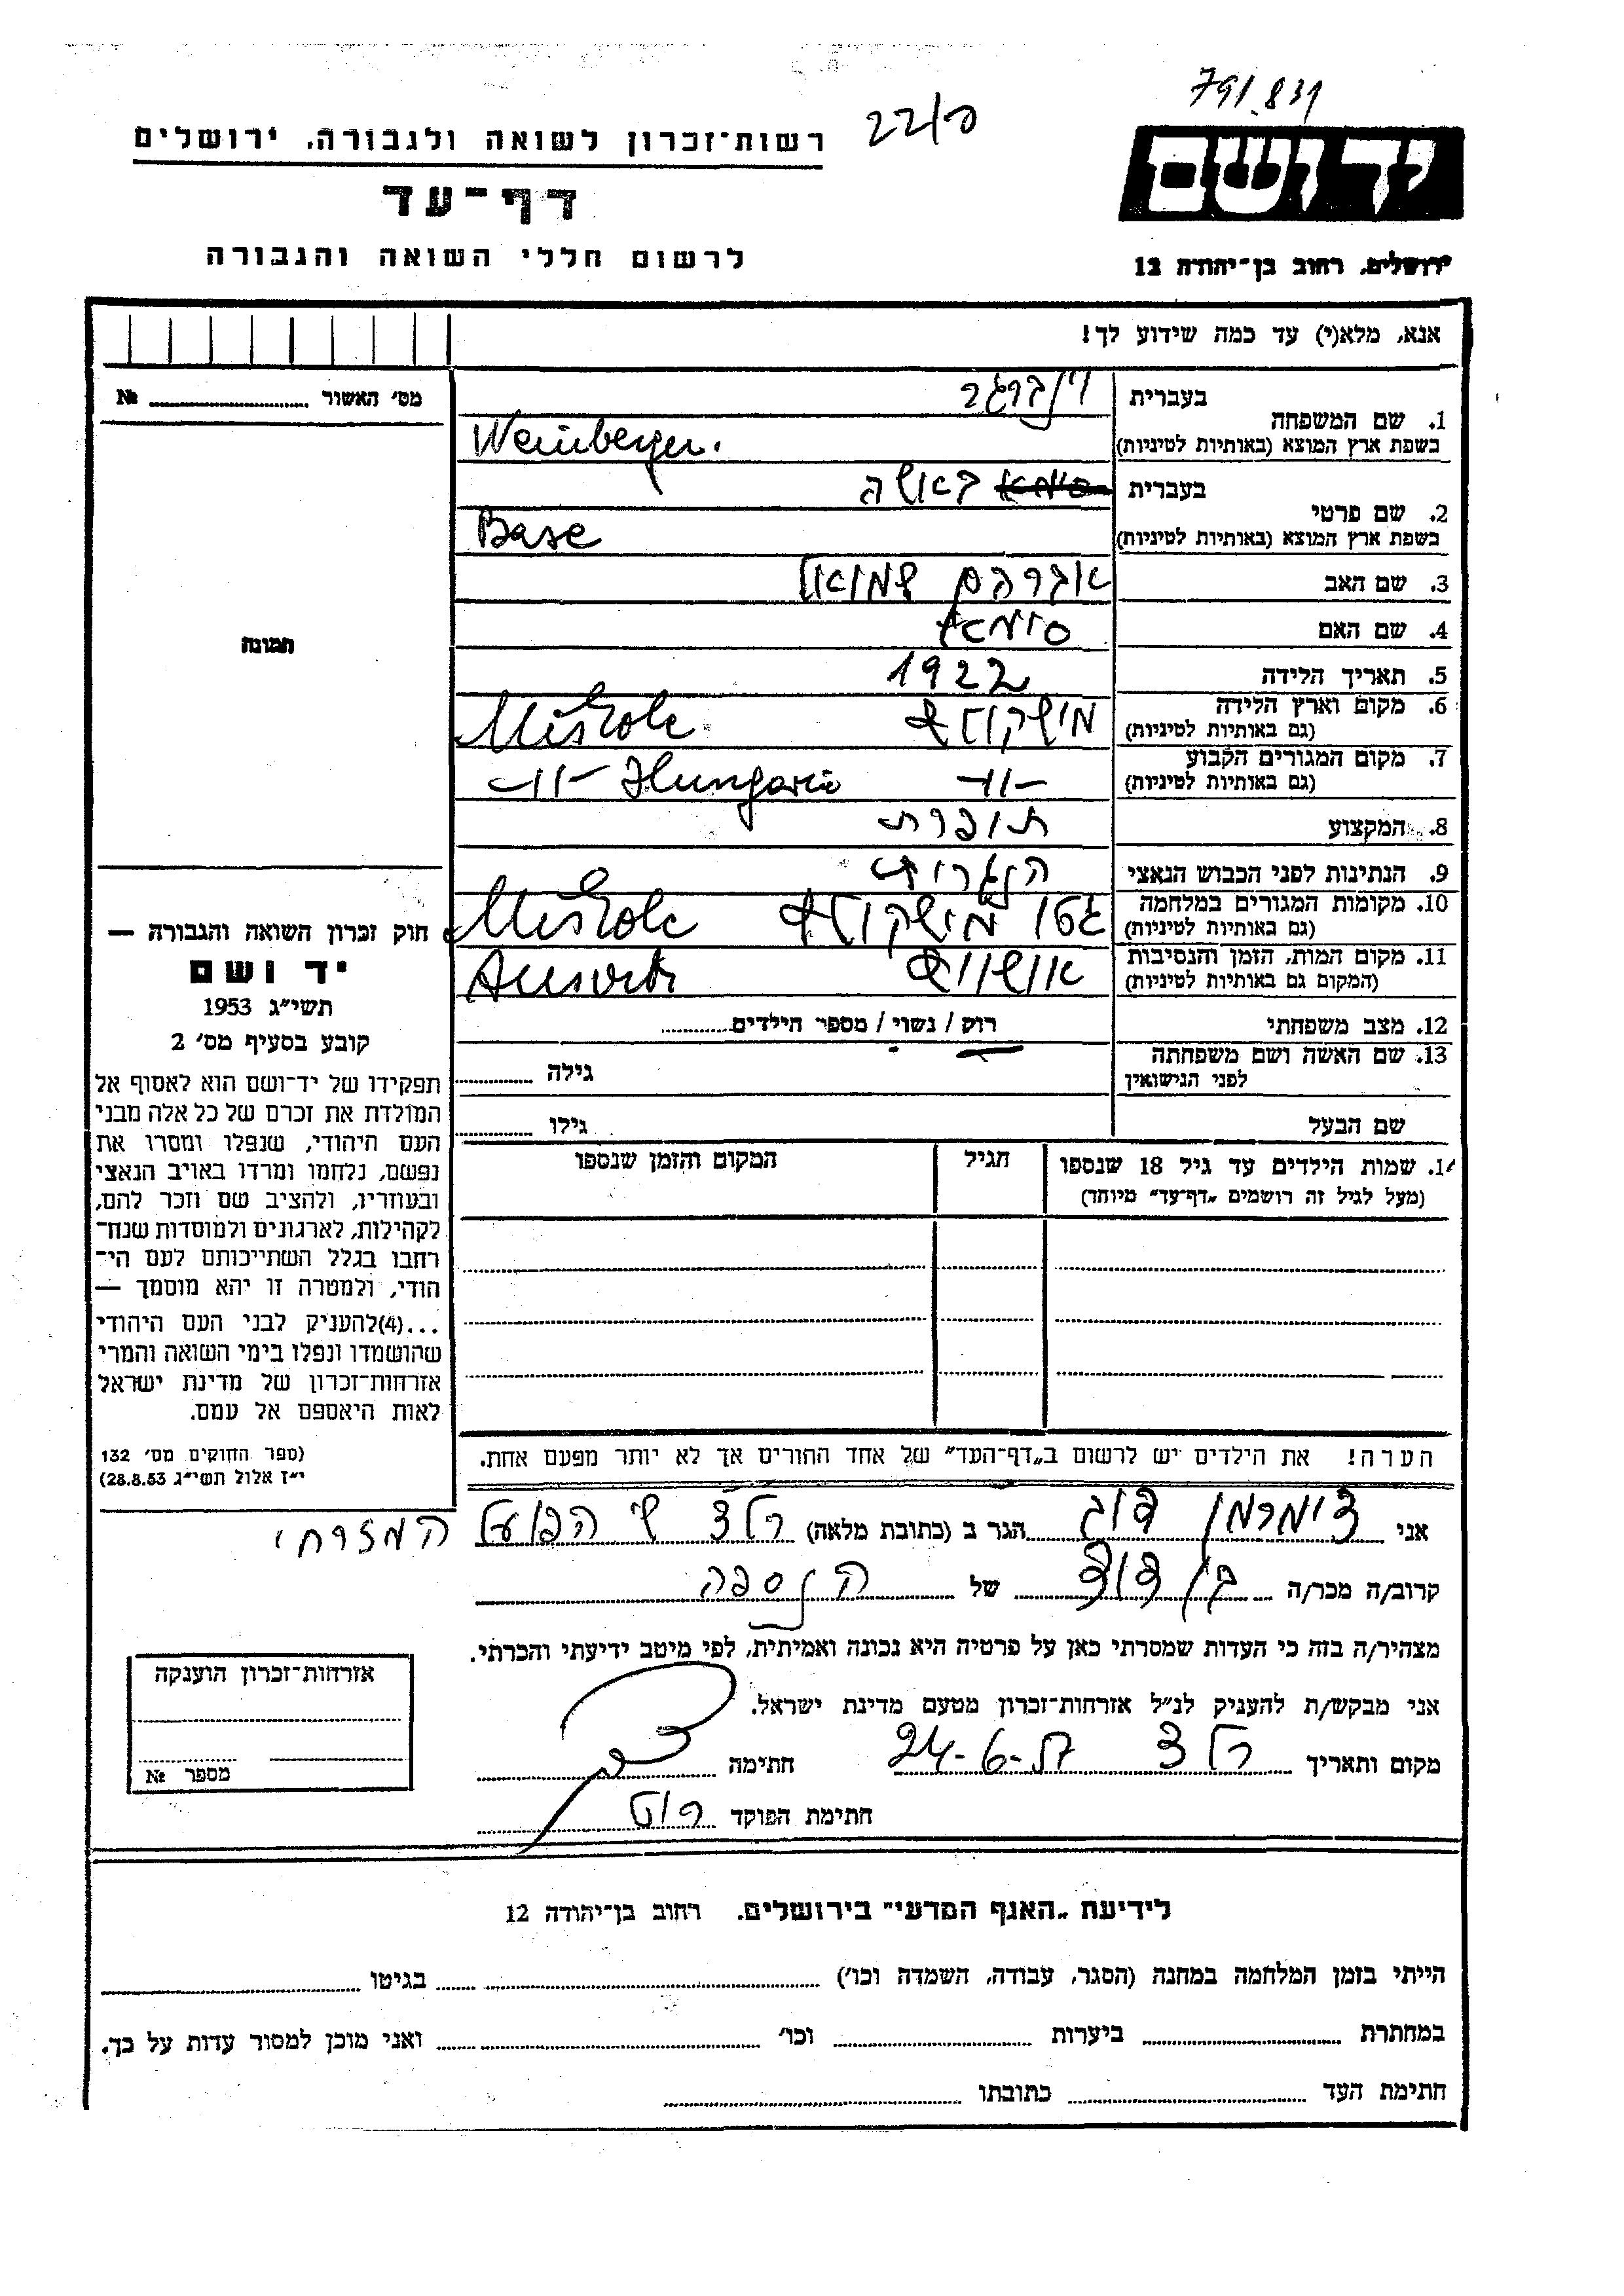 791.831
22/פ
רשות־זכרון לשואה ולגבורה, ירושלים
יד ושם
דף־עד
לרשום חללי השואה והגבורה
ירושלים, רחוב בן־יהודה 12
אנא, מלא(י) עד כמה שידוע לך!
מס׳ האשור № ........
תמונה
1. שם המשפחה
בעברית
וינברגר
בשפת ארץ המוצא (באותיות לטיניות)
Weinberger.
2. שם פרטי
בעברית
סימא באשה
בשפת ארץ המוצא (באותיות לטיניות)
Base
3. שם האב אברהם שמואל
4. שם האם סימא
5. תאריך הלידה 1922
6. מקום וארץ הלידה מישקולץ Miskolc
(גם באותיות לטיניות)
7. מקום המגורים הקבוע -וו- -וו- Hungaria
(גם באותיות לטיניות)
8. המקצוע תופרת
9. הנתינות לפני הכבוש הנאצי הונגרית
10. מקומות המגורים במלחמה גטו מישקולץ Miskolc
(גם באותיות לטיניות)
11. מקום המות, הזמן והנסיבות אושויץ
(המקום גם באותיות לטיניות)
12. מצב משפחתי רוק / נשוי / מספר הילדים........
13. שם האשה ושם משפחתה
לפני הנישואין
גילה ........
שם הבעל גילו ........
14. שמות הילדים עד גיל 18 שנספו הגיל המקום והזמן שנספו
(מעל לגיל זה רושמים „דף־עד" מיוחד)
הערה! את הילדים יש לרשום ב„דף־העד" של אחד ההורים אך לא יותר מפעם אחת.
חוק זכרון השואה והגבורה —
יד ושם
תשי״ג 1953
קובע בסעיף מס׳ 2
תפקידו של יד־ושם הוא לאסוף אל
המולדת את זכרם של כל אלה מבני
העם היהודי, שנפלו ומסרו את
נפשם, נלחמו ומרדו באויב הנאצי
ובעוזריו, ולהציב שם וזכר להם,
לקהילות, לארגונים ולמוסדות שנח־
רבו בגלל השתייכותם לעם הי־
הודי, ולמטרה זו יהא מוסמך —
...(4)להעניק לבני העם היהודי
שהושמדו ונפלו בימי השואה והמרי
אזרחות־זכרון של מדינת ישראל
לאות היאספם אל עמם.
(ספר החוקים מס׳ 132
י״ז אלול תשי״ג 28.8.53)
אני צימרמן הגר ב (כתובת מלאה) הפועל המזרחי
קרוב/ה מכר/ה בן דוד של הנספה
מצהיר/ה בזה כי העדות שמסרתי כאן על פרטיה היא נכונה ואמיתית, לפי מיטב ידיעתי והכרתי.
אני מבקש/ת להעניק לנ״ל אזרחות־זכרון מטעם מדינת ישראל.
מקום ותאריך 24-6-57 חתימה
חתימת הפוקד
אזרחות־זכרון הוענקה
מספר №
לידיעת „האגף המדעי" בירושלים. רחוב בן־יהודה 12
הייתי בזמן המלחמה במחנה (הסגר, עבודה, השמדה וכו׳) ........ בגיטו ........
במחתרת ........ ביערות ........ וכו׳ ........ ואני מוכן למסור עדות על כך.
חתימת העד ........ כתובתו ........